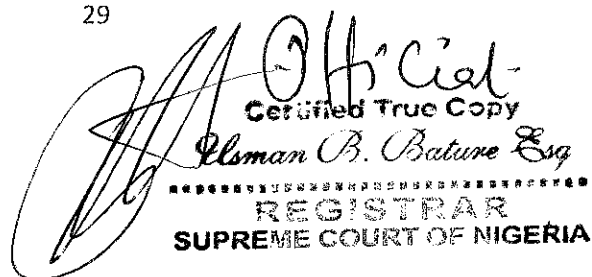 29
Official
Certified True Copy
Usman B. Bature Esq
REGISTRAR
SUPREME COURT OF NIGERIA